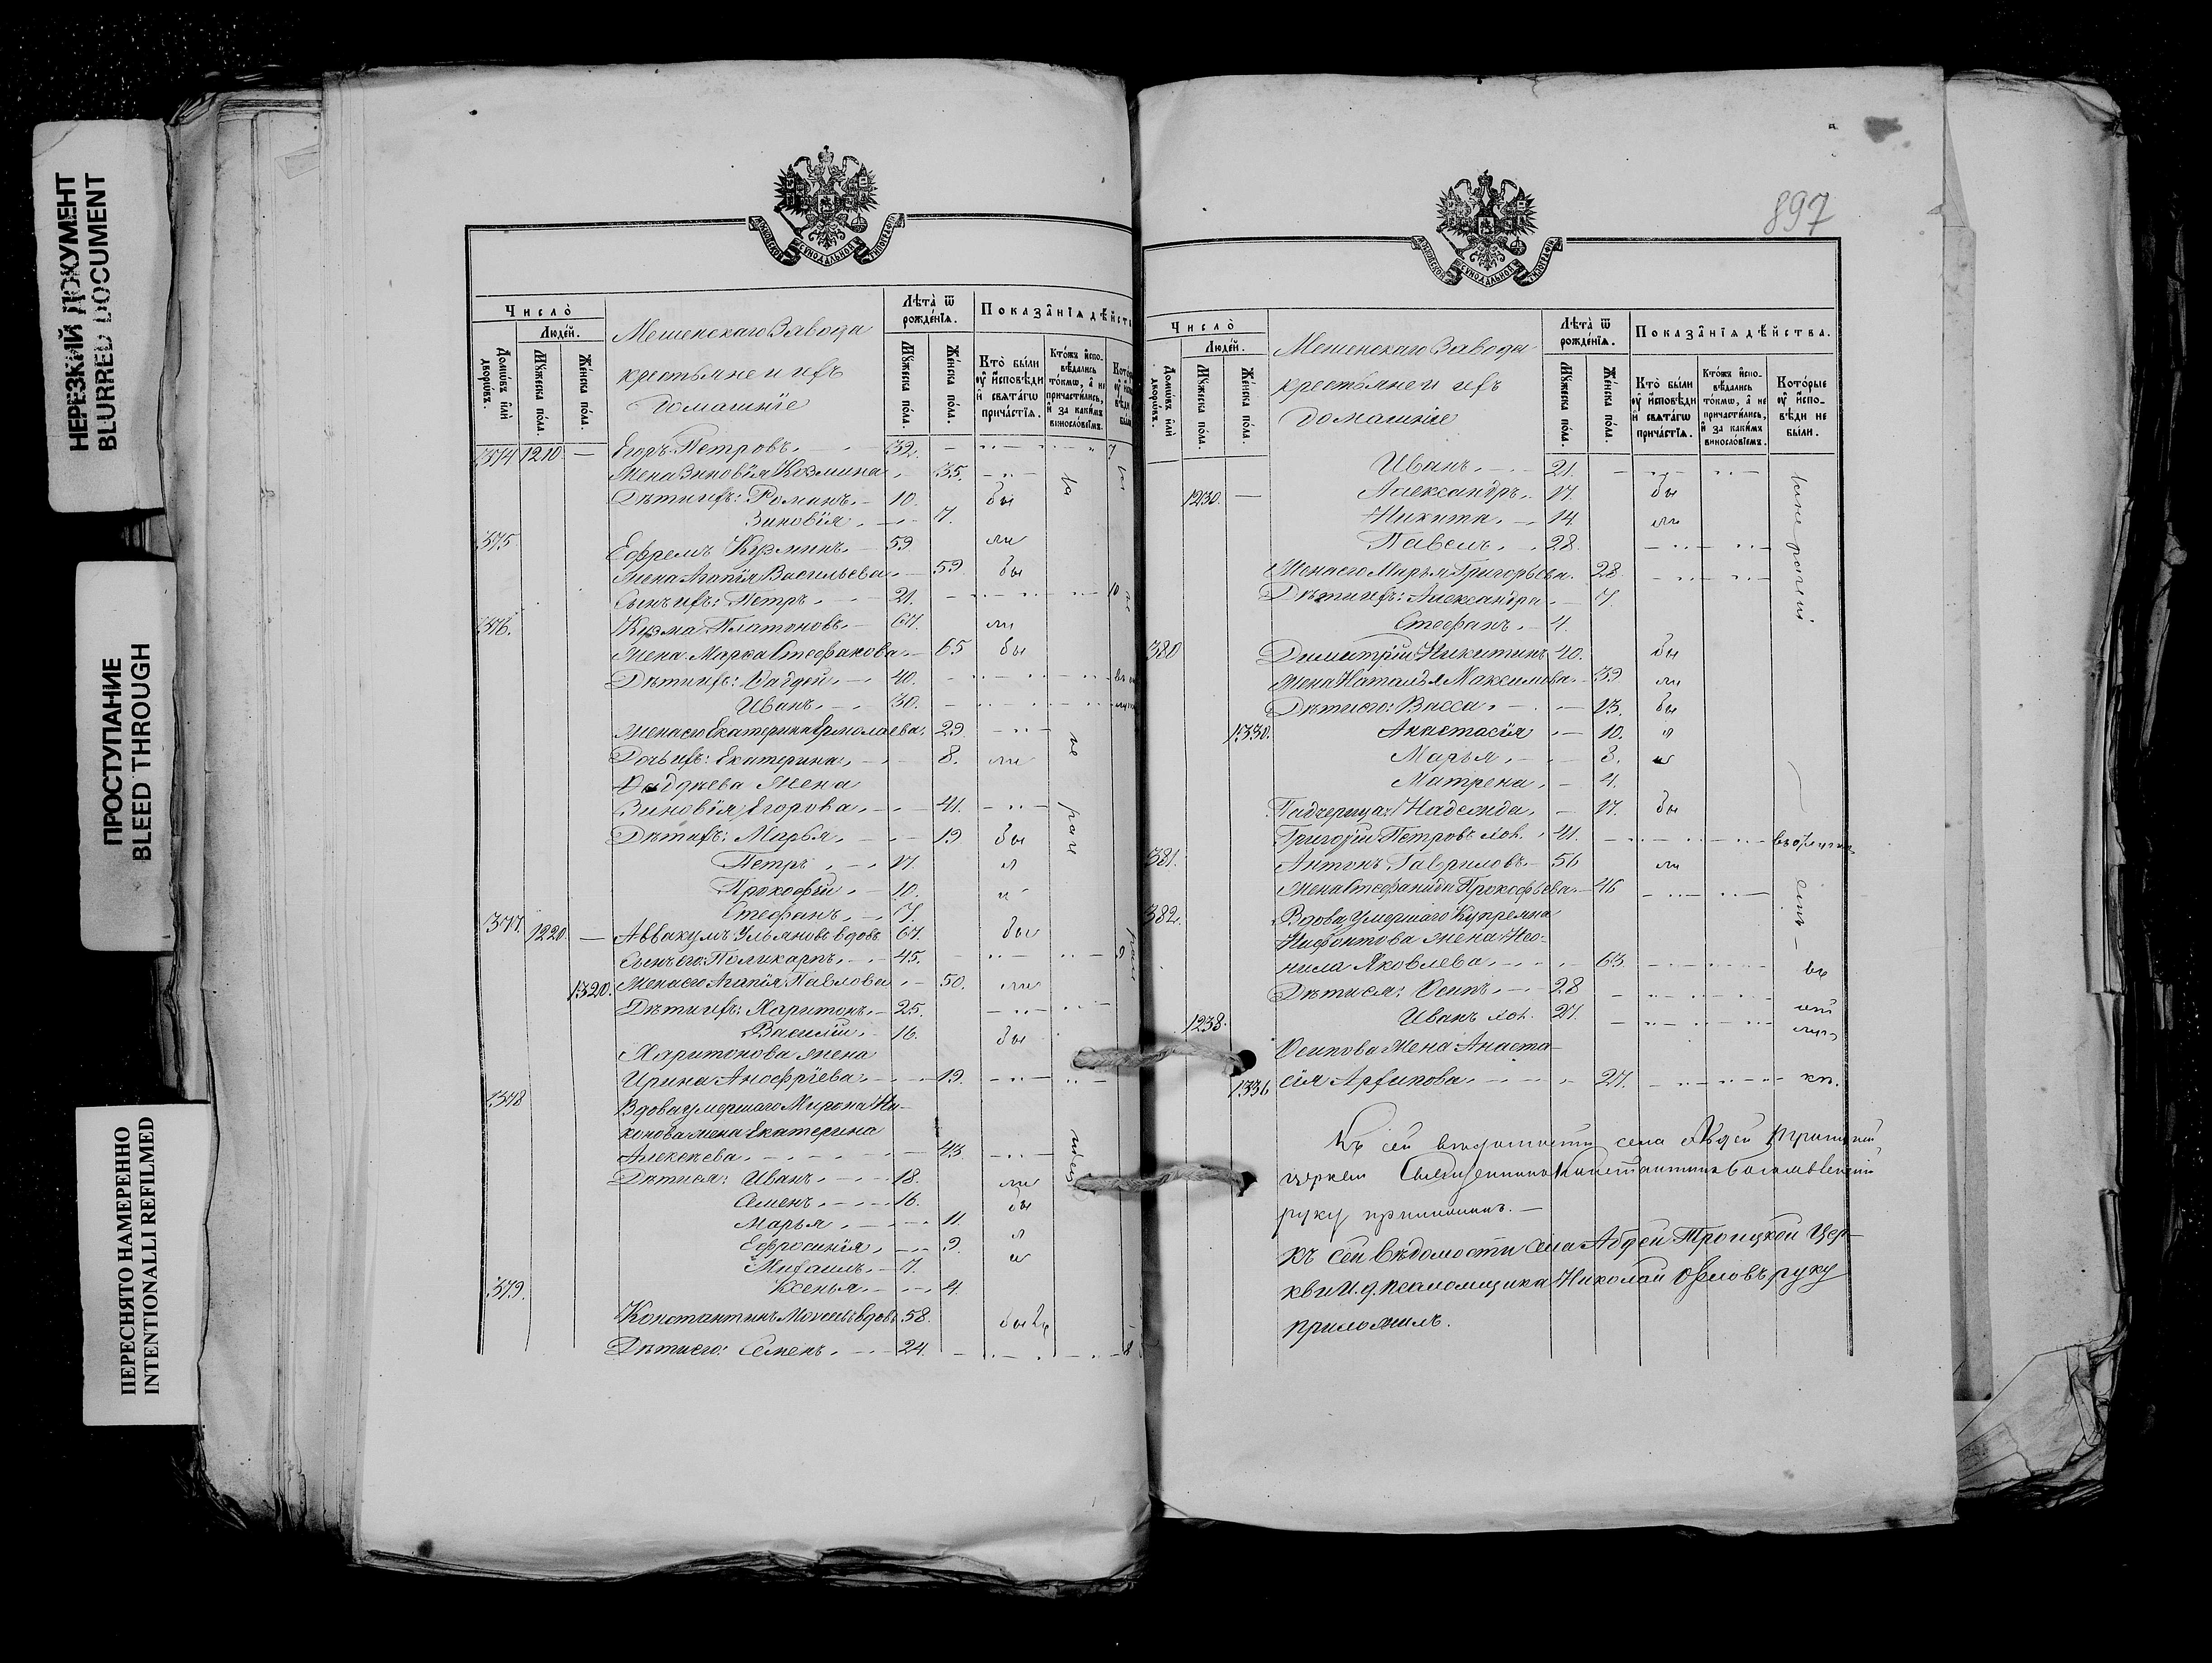 НЕРЕЗКИЙ ДОКУМЕНТ
BLURRED DOCUMENT
ПРОСТУПАНИЕ
BLEED THROUGH
ПЕРЕСНЯТО НАМЕРЕННО
INTENTIONALLI REFILMED
МОСКОВСКОЙ СѴНОДАЛЬНОЙ ТИПОГРАФІИ
Число̀
Людéй.
Домѡ́въ и҆лѝ дворѡ́въ.
Мꙋ́жеска по́ла.
Же́нска по́ла.
Мешенскаго Завода
крестьяне и ихъ
домашніе
Лѣта̀ ѿ рожде́нїѧ.
Мꙋ́жеска по́ла.
Же́нска по́ла.
Показа̑нїѧ дѣ́йств
Кто̀ бы́ли оу҆ и҆сповѣди и҆ свѧта́гѡ причасті́ѧ.
Кто́жъ и҆спо-вѣдались то́кмѡ, а҆ не причасти́лись, и҆ за каки́мъ винословїемъ.
374 1210 — Егоръ Петровъ 39.
Жена Зиновія Козмина 35.
Дѣти ихъ: Романъ 10. бы
Зиновія 7.
375 Ефремъ Кузминъ 59 ли
Жена Агапія Васильева 59 бы
Сынъ ихъ: Петръ 21.
376. Кузма Платоновъ 67. ли
Жена Марѳа Стефанова 65 бы
Дѣти ихъ: Фаддей 40.
Иванъ 30.
Жена его Екатерина Ермолаева 29.
Дочь ихъ: Екатерина 8. ли
Фаддѣева жена
Зиновія Егорова 41.
Дѣти ихъ: Марья 19 бы
Петръ 17. л
Прокофій 10. и
Стефанъ 7.
377. 1220 — Аввакумъ Ульяновъ вдовъ 67. бы
Сынъ его: Поликарпъ 45.
1320. Жена его Агапія Павлова 50. ли
Дѣти ихъ: Харитонъ 25.
Василій 16. бы
Харитонова жена
Ирина Анофріева 19.
378 Вдова умершаго Мирона Ни-
конова жена Екатерина
Алексѣева 43.
Дѣти ея: Иванъ 18. ли
Семенъ 16. бы
Марья 11. л
Ефросинія 9. и
Михаилъ 7.
379. Ксенья 4.
Константинъ вдовъ 58.
Дѣти его: Семенъ 24.
897
МОСКОВСКОЙ СѴНОДАЛЬНОЙ ТИПОГРАФІИ
Число̀
Людéй.
Домѡ́въ и҆лѝ дворѡ́въ.
Мꙋ́жеска по́ла.
Же́нска по́ла.
Мешенскаго Завода
крестьяне и ихъ
домашніе
Лѣта̀ ѿ рожде́нїѧ.
Мꙋ́жеска по́ла.
Же́нска по́ла.
Показа̑нїѧ дѣ́йства.
Кто̀ бы́ли оу҆ и҆сповѣди и҆ свѧта́гѡ причасті́ѧ.
Кто́жъ и҆спо-вѣдались то́кмѡ, а҆ не причасти́лись, и҆ за каки́мъ винословїемъ.
Кото́рые оу҆ и҆спо-вѣди не бы́ли.
Иванъ 21.
1230. — Александръ 17. бы
Никита 14. ли
Павелъ 28.
Жена его Марья Григорьева 28
Дѣти ихъ: Александра 7.
Стефанъ 4.
380 Димитрій Никитинъ 40. бы
Жена Наталья Максимова 39 ли
Дѣти его: Васса 13. бы
1330. Анастасія 10. л
Марья 3. и
Матрена 4.
Падчерица: Надежда 17. бы
Григорій Петровъ хол. 41.
381. Антонъ Гавриловъ 56 ли
Жена Стефанида Прокофьева 46
382. Вдова умершаго Купреяна
Нифонтова жена Нео-
нила Яковлева 63.
Дѣти ея: Осипъ 28
1238. Иванъ хол. 27.
Осипова жена Анаста-
1336 сія Архипова 27.
Къ сей вѣдомости села Абдей Троицкой
церкви Священникъ Константинъ Богоявленскій
руку приложилъ. —
Къ сей вѣдомости села Абдей Троицкой Цер-
кви и. д. псаломщика Николай Орловъ руку
приложилъ.